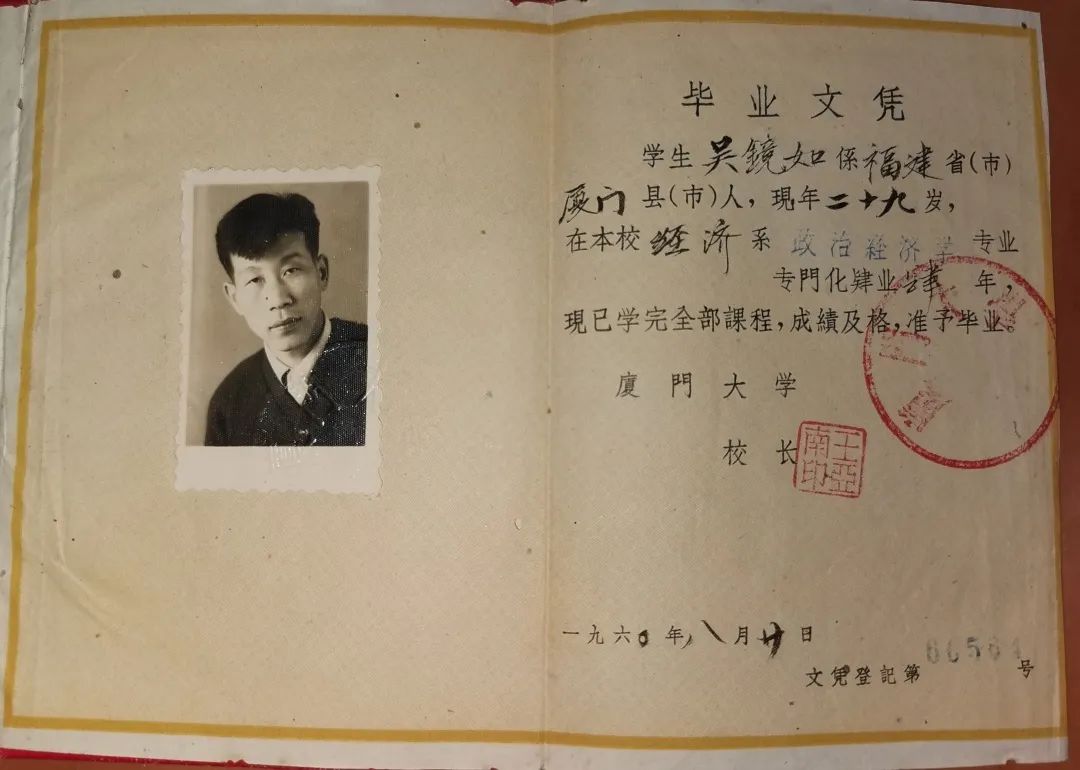 毕业文凭
学生吴鏡如係福建省(市)
厦门县(市)人，現年二十九岁，
在本校经济系政治経济学专业
专門化肄业肆年，
現已学完全部課程，成績及格，准予毕业。
廈門大学
校长
王亞南印
一九六0年八月廿日
文凭登記第 号